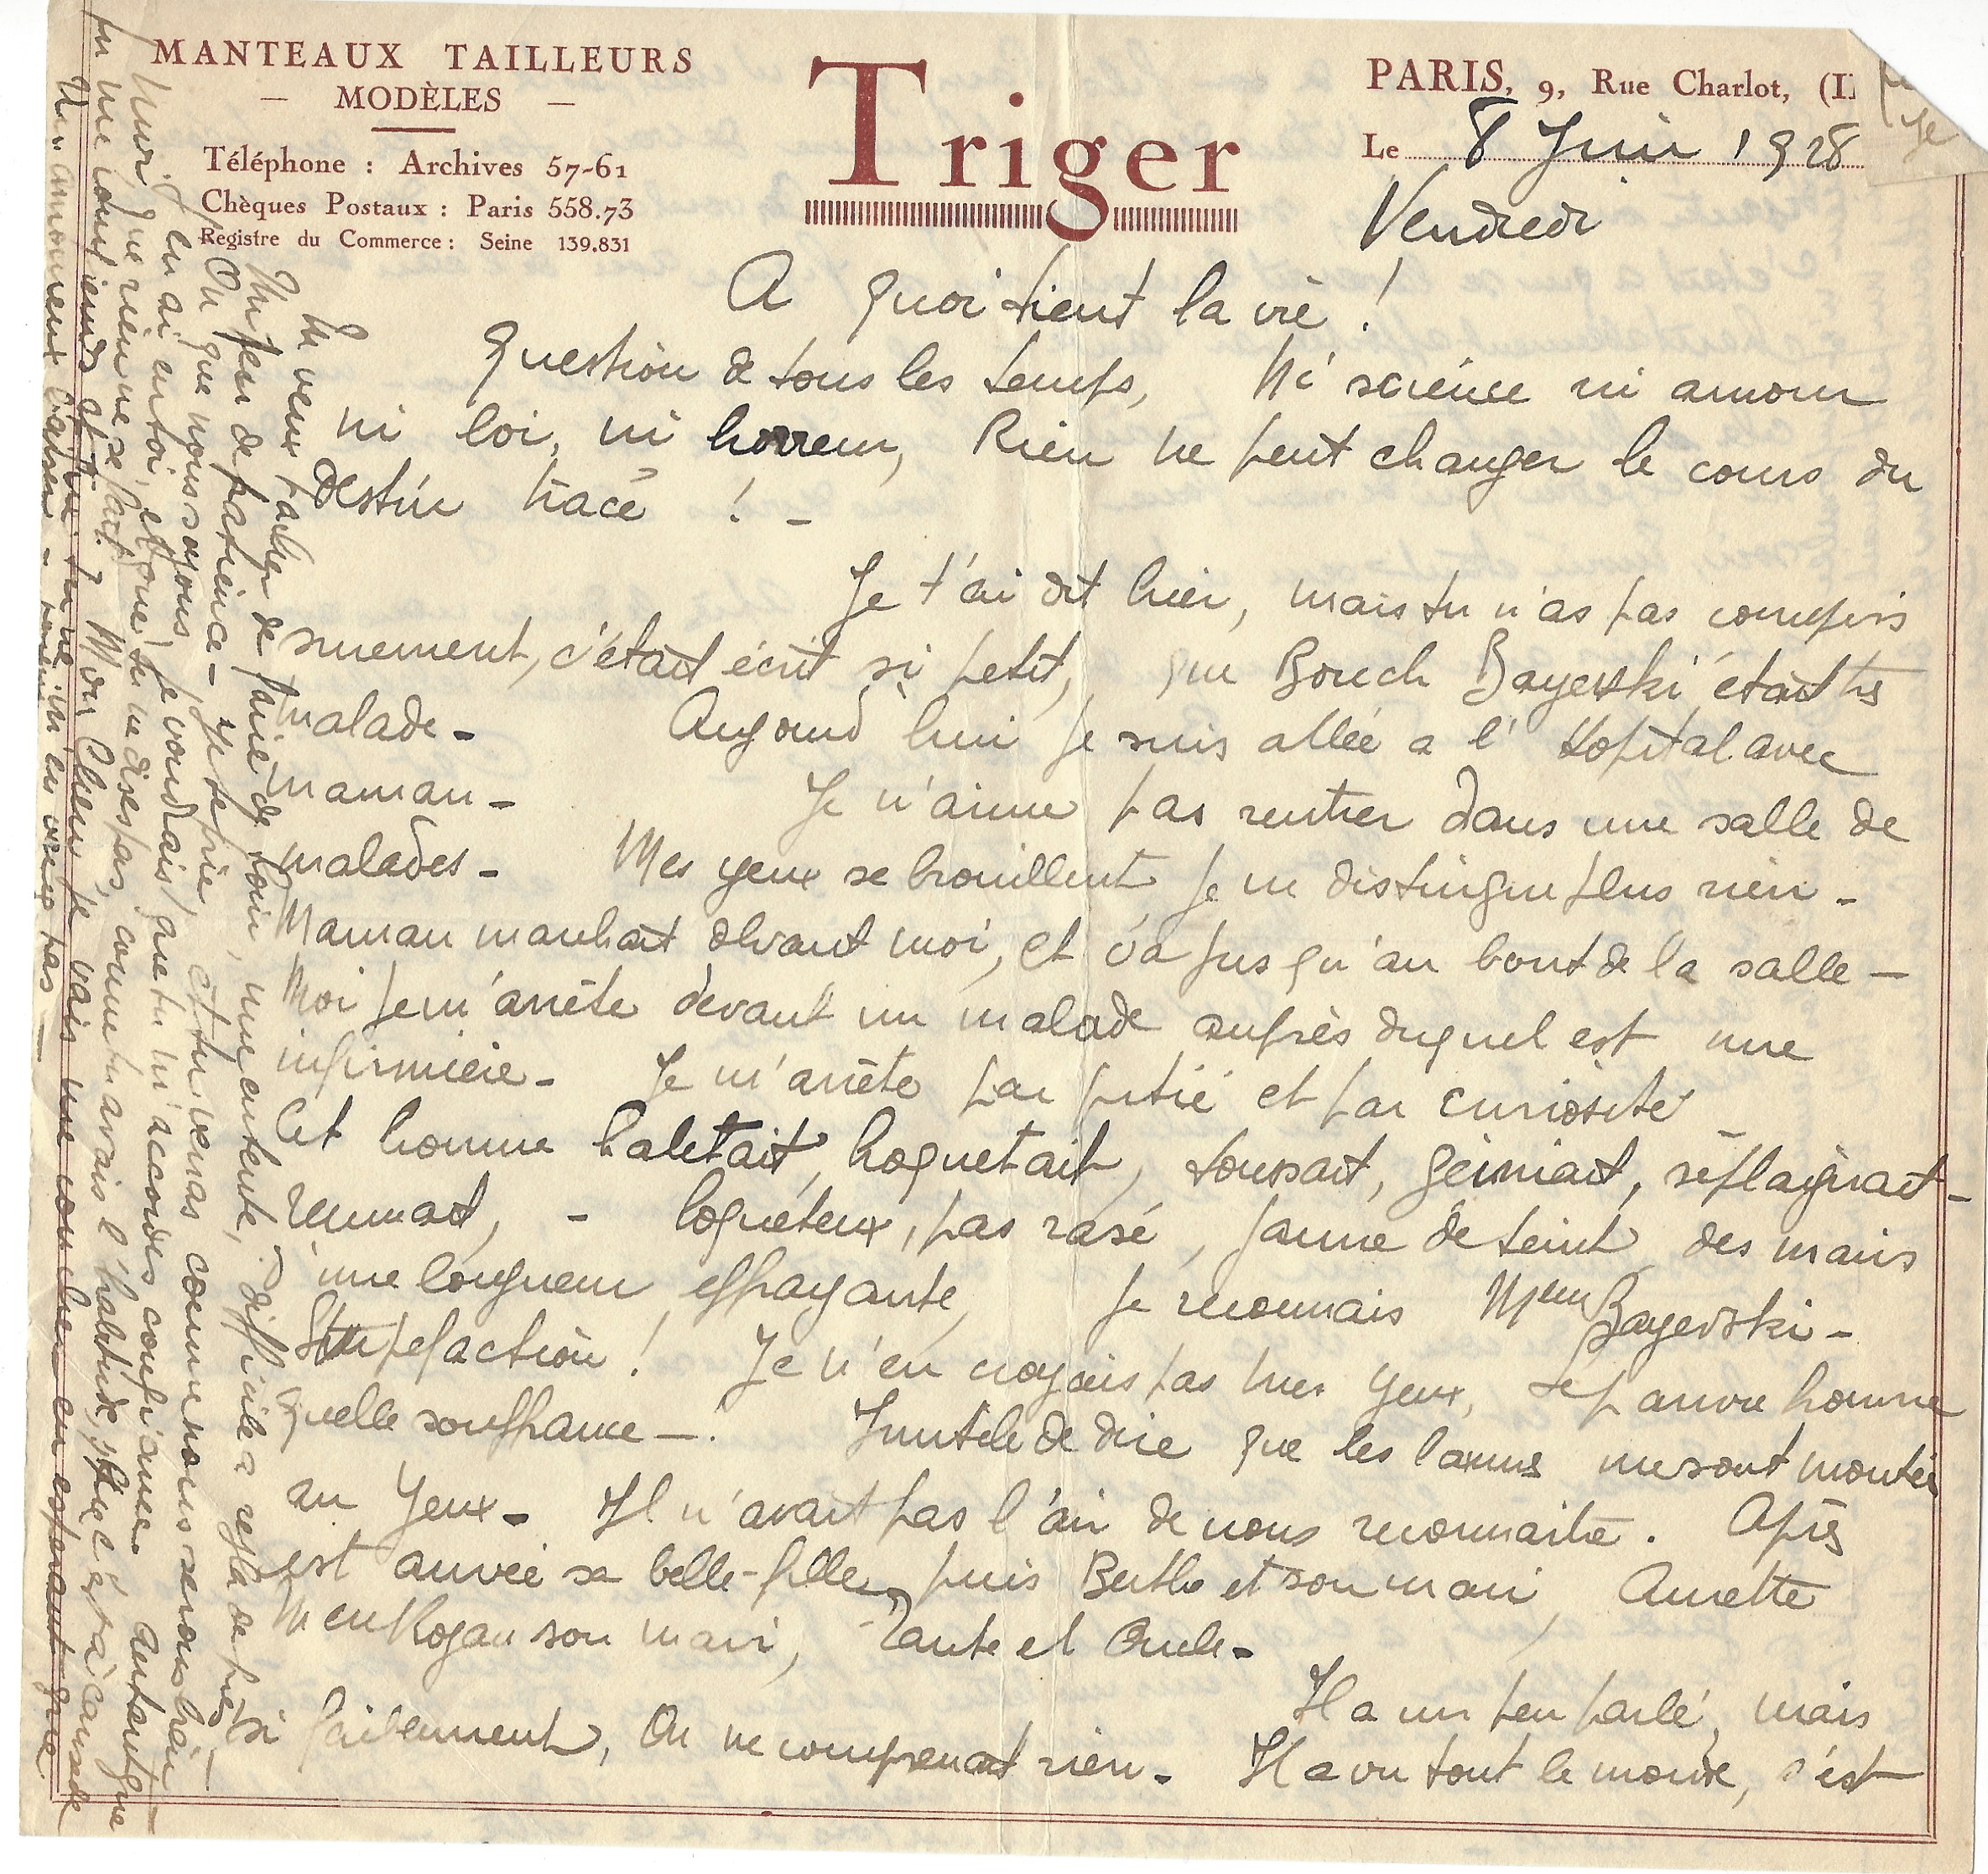 MANTEAUX TAILLEURS
— MODÈLES —
Téléphone : Archives 57-61
Chèques Postaux : Paris 558.73
Registre du Commerce : Seine 139.831
Triger
PARIS, 9, Rue Charlot, (I
Le 8 Juin 1928
Vendredi
A quoi tient la vie !
Question de tous les temps, Ni science ni amour
ni loi, ni horreur, Rien ne peut changer le cours du
destin tracé ! -
Je t'ai dit hier, mais tu n'as pas compris
surement, c'était écrit si petit, que Bouch Bayevski était très
malade - Aujourd'hui je suis allée a l'Hopital avec
maman - Je n'aime pas rentrer dans une salle de
malades - Mes yeux se brouillent, je ne distingue plus rien -
Maman marchait devant moi, et va jusqu'au bout de la salle —
Moi je m'arrête devant un malade auprès duquel est une
infirmière - Je m'arrête par pitié et par curiosité
Cet homme haletait, hoquetait, toussait, gémiait, se plaignait -
remuait, - loqueteux, pas rasé, jaune de teint, des mains
d'une longueur effrayante, Je reconnais Mr Bayevski -
Stupefaction ! Je n'en croyais pas mes yeux, Le pauvre homme
quelle souffrance — ! Inutile de dire que les larmes me sont montées
au yeux - Il n'avait pas l'air de nous reconnaitre. Après
est arrivée sa belle-fille, puis Berthe et son mari, Annette
Men Kogan son mari, Tante et Oncle -
Il a un peu parlé, mais
si faiblement, On ne comprenait rien - Il a vu tout le monde, s'est
Tu veux tacher de faire de loin, une entente, difficile a regla de près
Un peu de patience - Je te prie, et tu verras comme nous serons bien —
On que nous soyons, je voudrais que tu m'accordes confiance Autant que
moi j'en ai en toi, et que tu ne dises pas, comme tu avais l'habitude, que c'est à cause de
que rien ne se fait.
tu me contiens et toi tu ? Mon Cheri je vais me coucher en esperant que
un baiser - m'en veux pas —